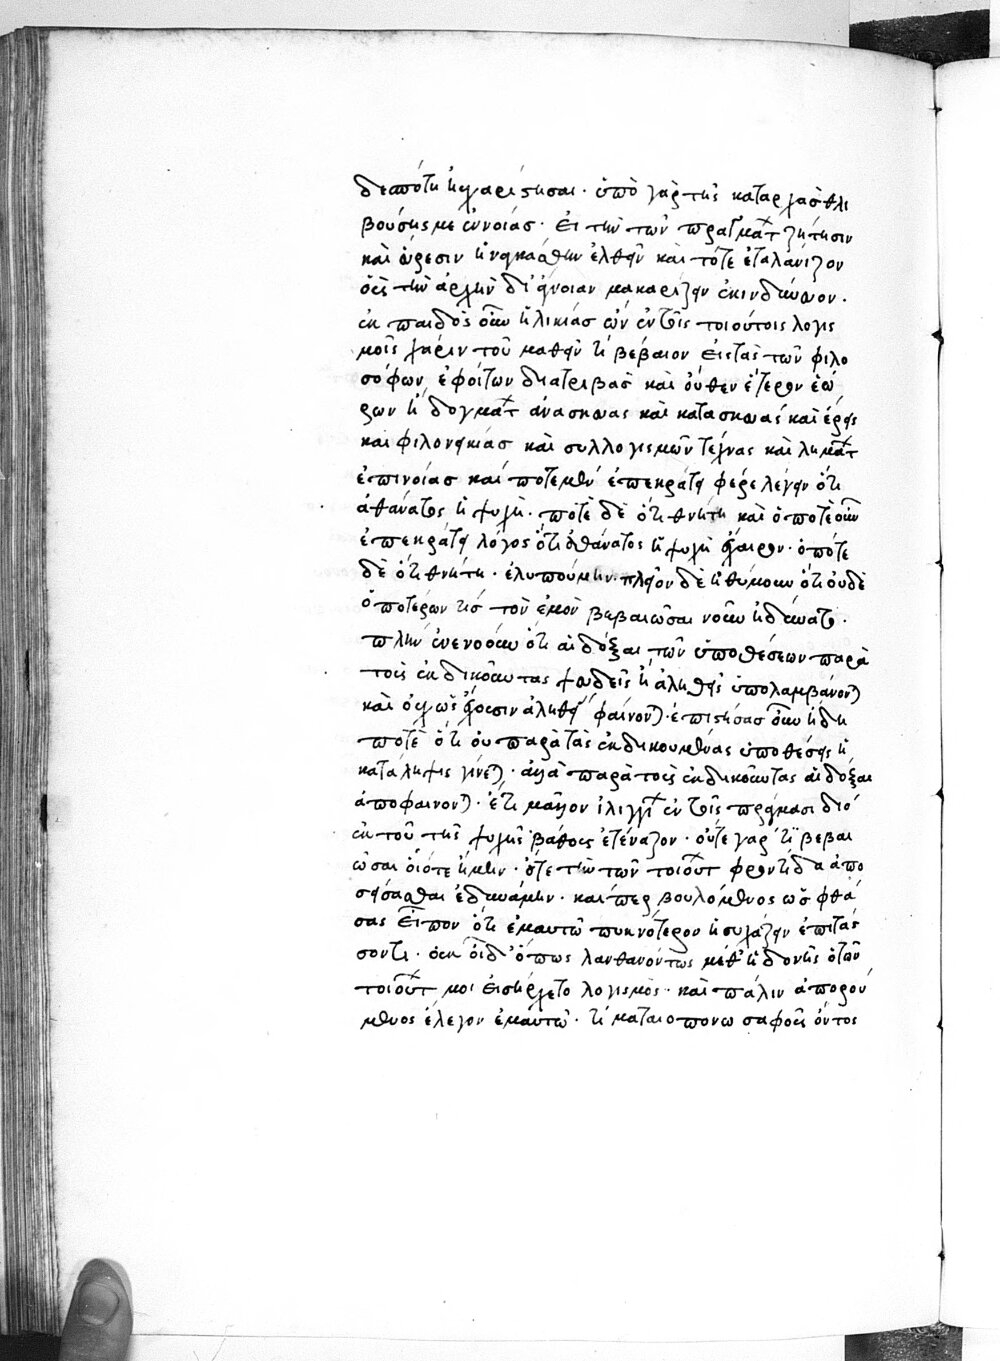 δεσπότη ηὐχαρίστησα. ὑπὸ γὰρ τῆς κατ' ἀρχὰς θλι
βούσης με ἐννοίας. εἰ τὴν τῶν πραγμάτ ζήτησιν
καὶ εὕρεσιν ἠναγκάσθην ἐλθεῖν καὶ τότε ἐταλάνιζον
οὓς τὴν ἀρχὴν δι' ἄνοιαν μακαρίζειν ἐκινδύνευον.
ἐκ παιδὸς οὖν ἡλικίας ὢν ἐν τοῖς τοιούτοις λογισ
μοῖς χάριν τοῦ μαθεῖν τί βέβαιον εἰς τὰς τῶν φιλο
σόφων ἐφοίτων διατριβὰς καὶ οὐθὲν ἕτερον ἑώ
ρων ἢ δογμάτ ἀνασκευὰς καὶ κατασκευὰς καὶ ἔρεις
καὶ φιλονεικίας καὶ συλλογισμῶν τέχνας καὶ λημμάτ
ἐπινοίας καὶ ποτὲ μὲν ἐπεκράτει φέρε λέγειν ὅτι
ἀθάνατος ἡ ψυχή. ποτὲ δὲ ὅτι θνητὴ καὶ ὁπότε οὖν
ἐπεκράτει λόγος ὅτι ἀθάνατος ἡ ψυχὴ ἔχαιρον. ὁπότε
δὲ ὅτι θνητὴ. ἐλυπούμην. πλεῖον δὲ ἠθύμουν ὅτι οὐδὲ
ὁπότερόν τις τὸν ἐμὸν βεβαιῶσαι νοῦν ἠδύνατο.
πλὴν ἐνενόουν ὅτι αἱ δόξαι τῶν ὑποθέσεων παρὰ
τοὺς ἐκδικοῦντας ψευδεῖς ἢ ἀληθεῖς ὑπολαμβάνον
καὶ οὐχ ὡς ἔχουσιν ἀληθεῖ φαίνον. ἐπιστήσας οὖν ἤδη
ποτὲ ὅτι οὐ παρὰ τὰς ἐκδικουμένας ὑποθέσεις ἡ
κατάληψις γίνε. ἀλλὰ παρὰ τοὺς ἐκδικοῦντας αἱ δόξαι
ἀποφαίνον. ἔτι μᾶλλον ἰλιγγί ἐν τοῖς πράγμασι διὸ
ἐκ τοῦ τῆς ψυχῆς βάθους ἐστέναζον. οὔτε γάρ τι βεβαι
ῶσαι οἷός τε ἤμην. οὔτε τὴν τῶν τοιούτ φροντίδα ἀπο
σείσασθαι ἐδυνάμην. καίπερ βουλόμενος ὡς φθά
σας εἶπον ὅτι ἐμαυτῷ πυκνότερον ἡσυχάζειν ἐπιτάσ
σοντι. οὐκ οἶδ' ὅπως λανθανόντως μεθ' ἡδονῆς ὁ τῶν
τοιούτ μοι εἰσήρχετο λογισμὸς. καὶ πάλιν ἀπορού
μενος ἔλεγον ἐμαυτῷ. τί ματαιοπονῶ σαφοῦς ὄντος